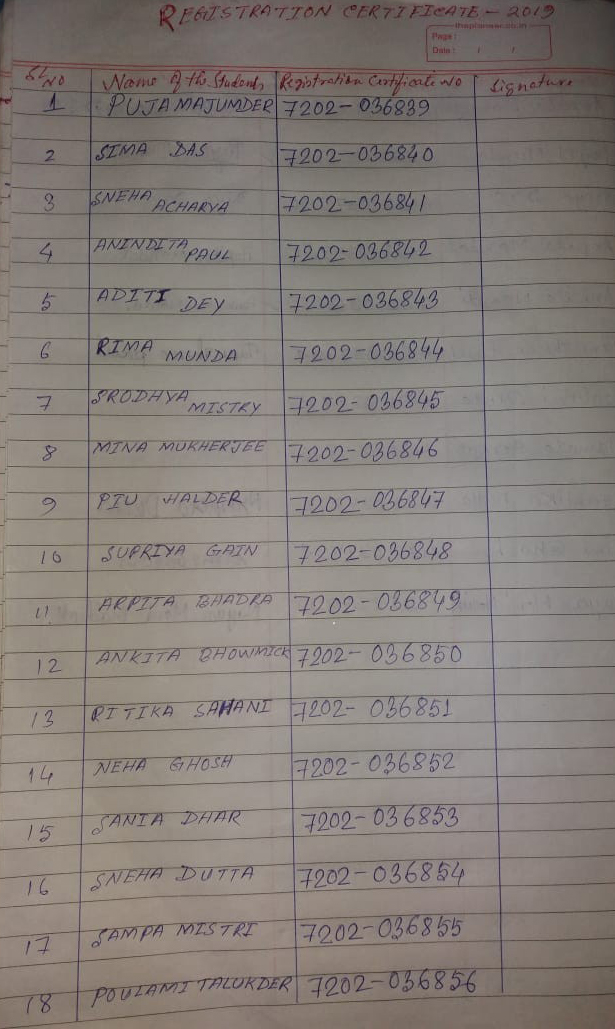 REGISTRATION CERTIFICATE - 2019
theplanner.co.in
Page :
Date : / /
SL NO Name of the Students Registration Certificate No Signature
1 PUJA MAJUMDER 7202-036839
2 SIMA DAS 7202-036840
3 SNEHA ACHARYA 7202-036841
4 ANINDITA PAUL 7202-036842
5 ADITI DEY 7202-036843
6 RIMA MUNDA 7202-036844
7 SRODHYA MISTRY 7202-036845
8 MINA MUKHERJEE 7202-036846
9 PIU HALDER 7202-036847
10 SUPRIYA GAIN 7202-036848
11 ARPITA BHADRA 7202-036849
12 ANKITA BHOWMICK 7202-036850
13 RITIKA SAHANI 7202-036851
14 NEHA GHOSH 7202-036852
15 SANIA DHAR 7202-036853
16 SNEHA DUTTA 7202-036854
17 SAMPA MISTRI 7202-036855
18 POULAMI TALUKDER 7202-036856